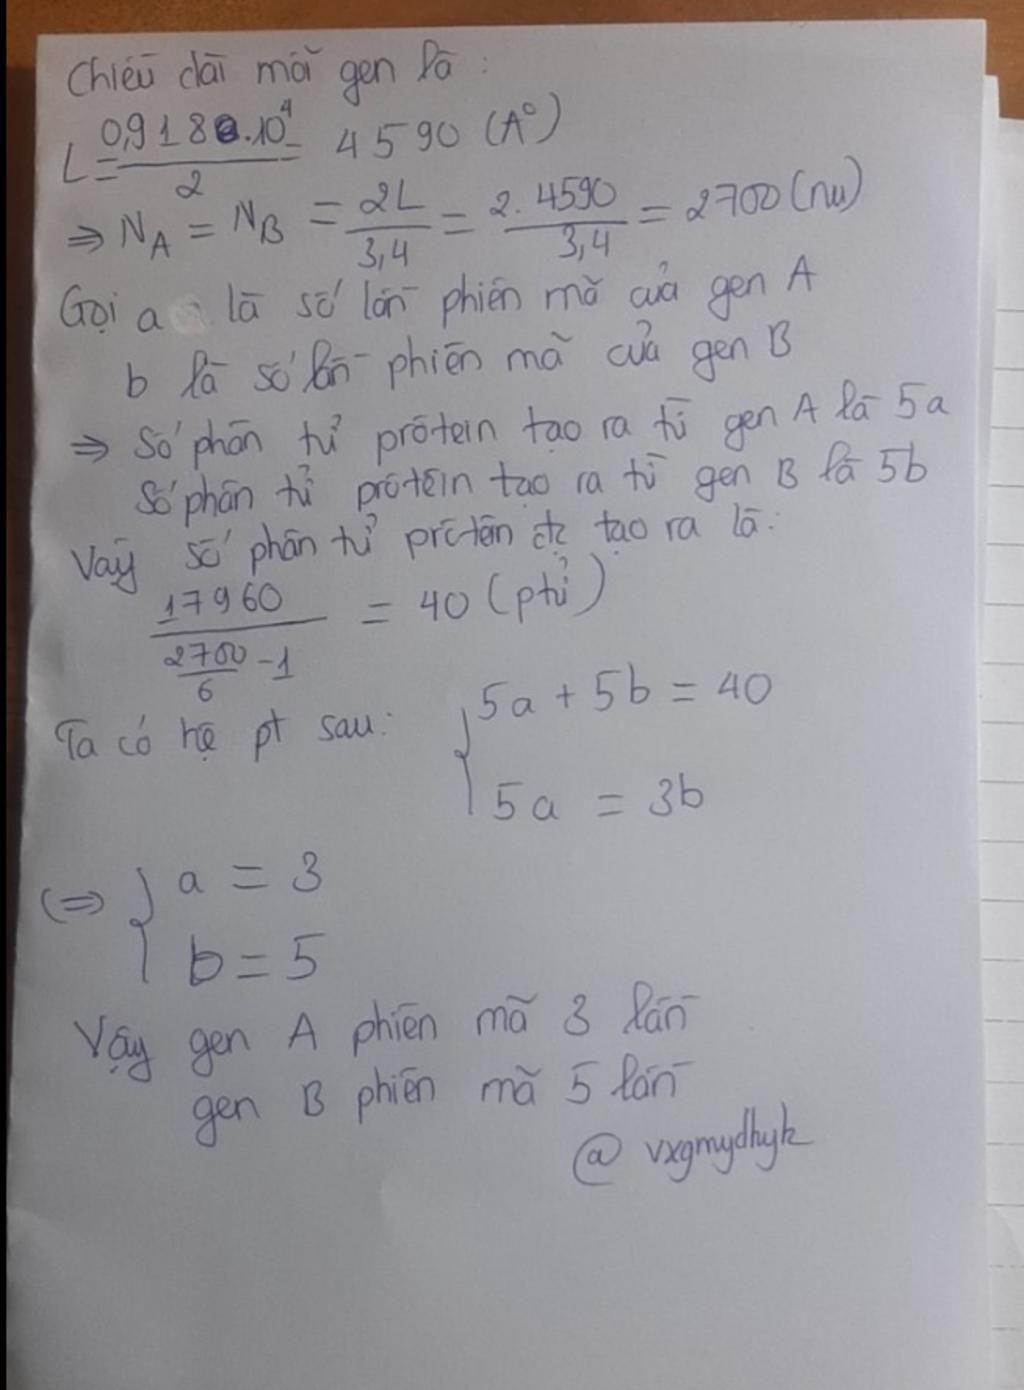 Chiều dài mỗi gen là:
L = 0,918.10⁴ / 2 = 4590 (A°)
⇒ N_A = N_B = 2L / 3,4 = 2.4590 / 3,4 = 2700 (nu)
Gọi a là số lần phiên mã của gen A
b là số lần phiên mã của gen B
⇒ Số phân tử prôtein tạo ra từ gen A là 5a
Số phân tử prôtêin tạo ra từ gen B là 5b
Vậy số phân tử prôtên đc tạo ra là:
17960 / (2700/6 - 1) = 40 (ptử)
Ta có hệ pt sau: { 5a + 5b = 40
5a = 3b
(⇒) { a = 3
b = 5
Vậy gen A phiên mã 3 lần
gen B phiên mã 5 lần
@ vxgmydhyk